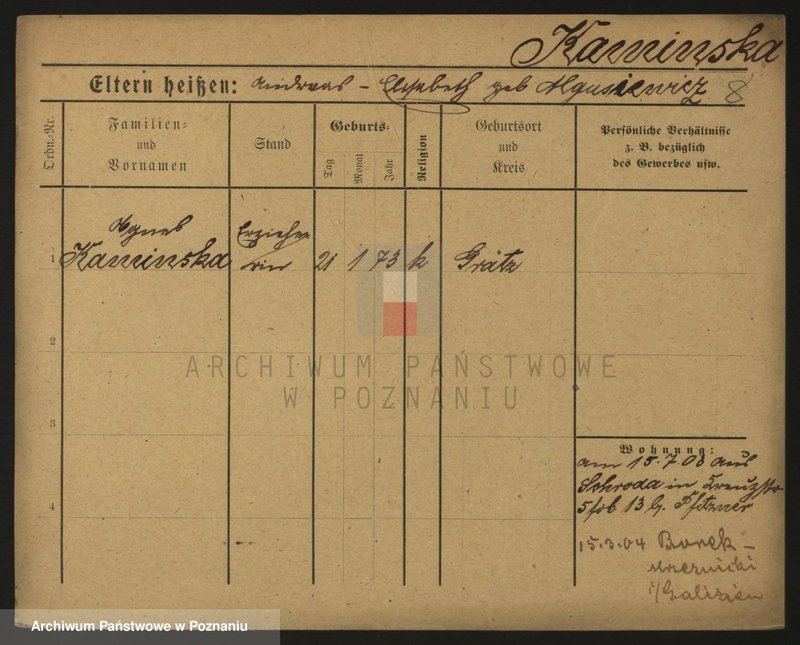 Kaminska
Eltern heißen: Andreas - Elisabeth geb 8
Ordn.-Nr.
Familien-
und
Vornamen
Stand
Geburts-
Tag
Monat
Jahr
Religion
Geburtsort
und
Kreis
Persönliche Verhältnisse
z. B. bezüglich
des Gewerbes usw.
Agnes
Erziehe
1 Kaminska rin 21 1 73 k Grätz
2
ARCHIWUM PAŃSTWOWE
W POZNANIU
3
4
Wohnung:
am 15.7.03 aus
Schroda in Kreuzstr
5 13 b. Pfitzner
15.3.04 Borek-
i/Galizien
Archiwum Państwowe w Poznaniu